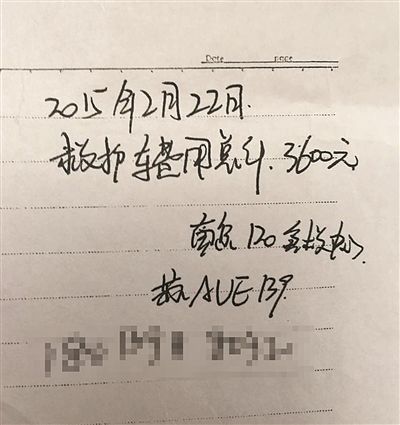 Date page
2015年2月22日.
救护车费用总计.3600元
120急救中心.
AUE139.